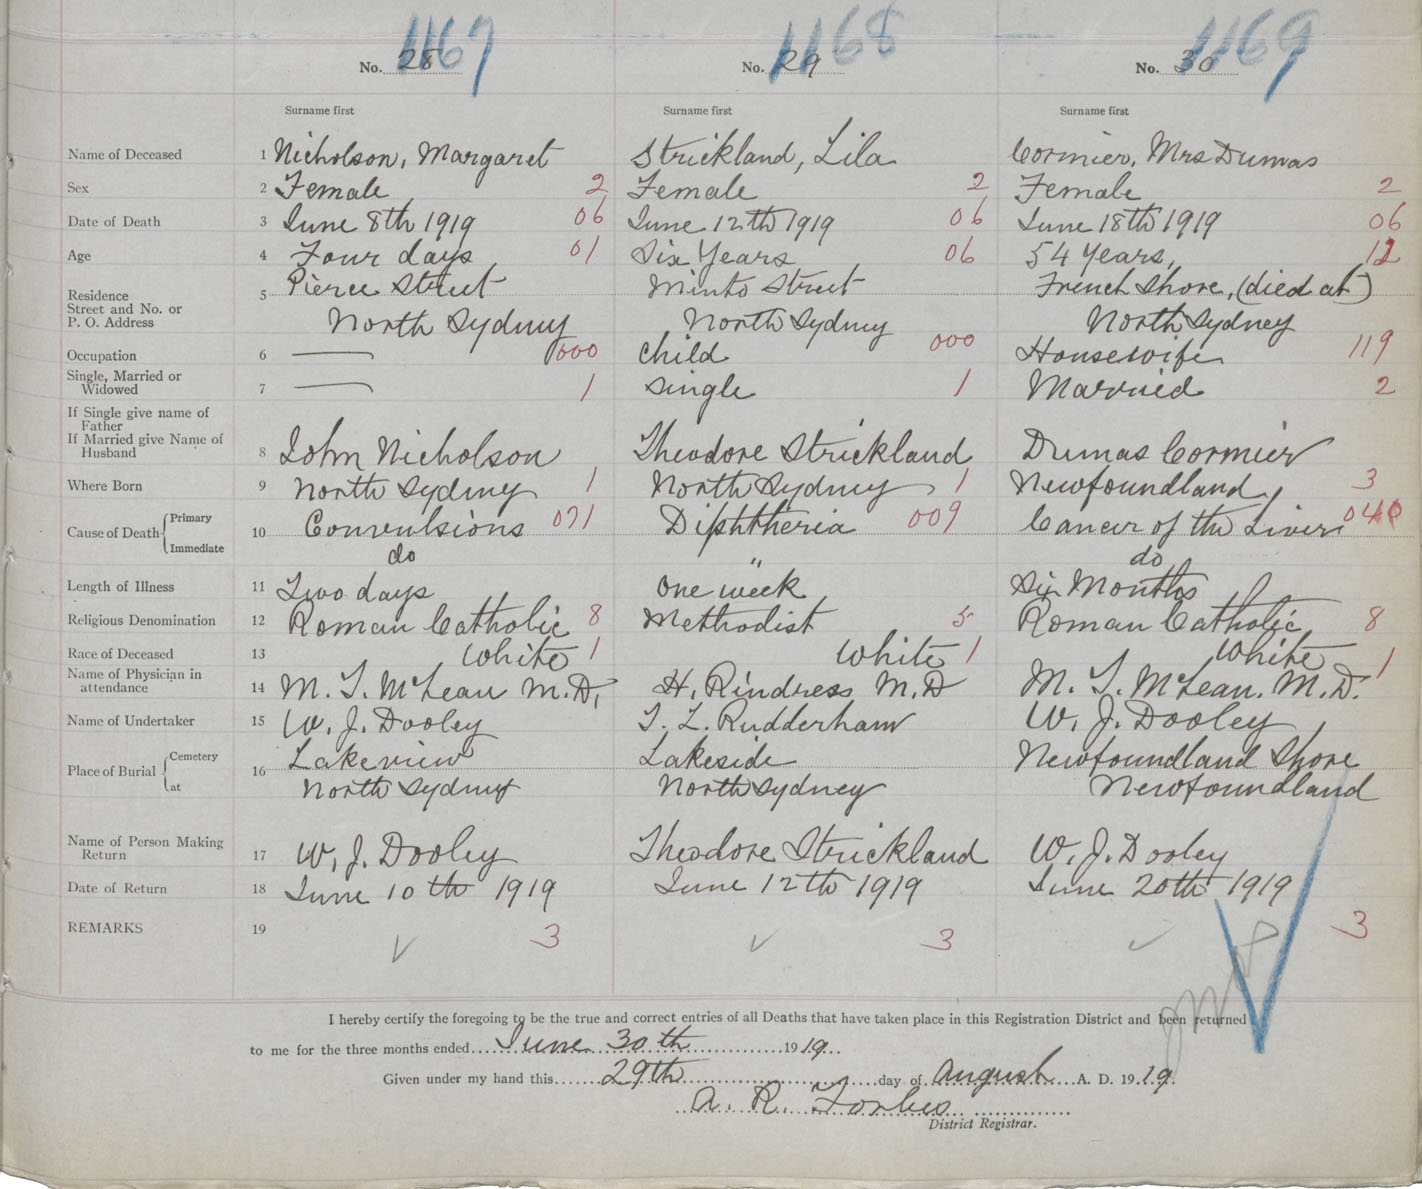 1167 1168 1169
No. 28 No. 29 No. 30
Surname first Surname first Surname first
Name of Deceased 1 Nicholson, Margaret Strickland, Lila Cormier, Mrs Dumas
Sex 2 Female 2 Female 2 Female 2
Date of Death 3 June 8th 1919 06 June 12th 1919 06 June 18th 1919 06
Age 4 Four days 01 Six Years 06 54 Years, 12
Residence
Street and No. or
P. O. Address
5 Pierce Street Minto Street French Shore, (died at)
North Sydney North Sydney North Sydney
Occupation 6 — 000 Child 000 Housewife 119
Single, Married or
Widowed
7 — 1 Single 1 Married 2
If Single give name of
Father
If Married give Name of
Husband
8 John Nicholson Theodore Strickland Dumas Cormier
Where Born 9 North Sydney 1 North Sydney 1 Newfoundland 3
Cause of Death { Primary
Immediate
10 Convulsions 071 Diphtheria 009 Cancer of the Liver 040
do " do
Length of Illness 11 Two days One week Six Months
Religious Denomination 12 Roman Catholic 8 Methodist 5 Roman Catholic 8
Race of Deceased 13 White 1 White 1 White 1
Name of Physician in
attendance
14 M. T. McLean M.D. H. Rindress M.D M. T. McLean. M.D.
Name of Undertaker 15 W. J. Dooley T. L. Rudderham W. J. Dooley
Place of Burial { Cemetery
at
16 Lakeview Lakeside Newfoundland Shore
North Sydney North Sydney Newfoundland
Name of Person Making
Return
17 W. J. Dooley Theodore Strickland W. J. Dooley
Date of Return 18 June 10th 1919 June 12th 1919 June 20th 1919
REMARKS 19 3 3 3
I hereby certify the foregoing to be the true and correct entries of all Deaths that have taken place in this Registration District and been returned
to me for the three months ended June 30th 1919.
Given under my hand this 29th day of August A. D. 1919.
A. R. Forbes
District Registrar.